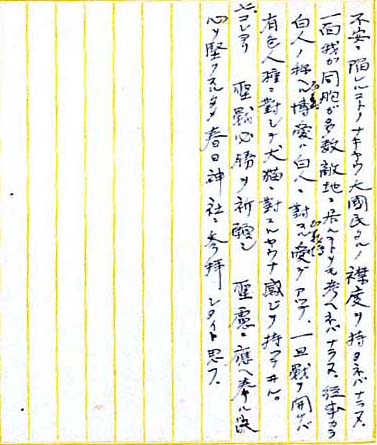 不安ニ陥ルコトノナキヤウ大國民タルノ襟度ヲ持タネバナラヌ。
一面我ガ同胞ガ多数敵地ニ居ルコトヲモ考ヘネバナラヌ。従事カラ
白人ノ称ヘル博愛ハ白人ニ對スル愛デアツテ、一旦戰ヲ開ケバ
有色人種ニ對シテ犬猫ニ對スルヤウナ感ジヲ持ツテヰル。
聖戰必勝ヲ祈願シ 聖慮ニ應ヘ奉ル決
心ヲ堅クスルタメ春日神社ニ参拝シタイト思フ。